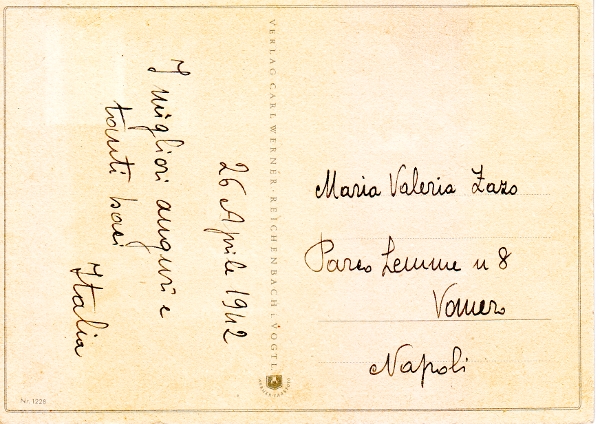 26 Aprile 1942
I migliori auguri e
tanti baci
Italia
VERLAG CARL WERNER · REICHENBACH i. VOGTL.
Maria Valeria Zazo
Parco Lemme n 8
Vomero
Napoli
Nr. 1228